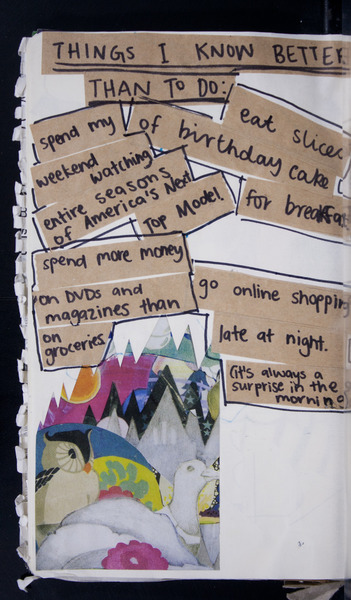 THINGS I KNOW BETTER
THAN TO DO:
spend my
weekend watching
entire seasons
of America's Next
Top Model.
eat slices
of birthday cake
for breakfast
spend more money
on DVDs and
magazines than
on
groceries
go online shopping
late at night.
(it's always a
surprise in the
morning